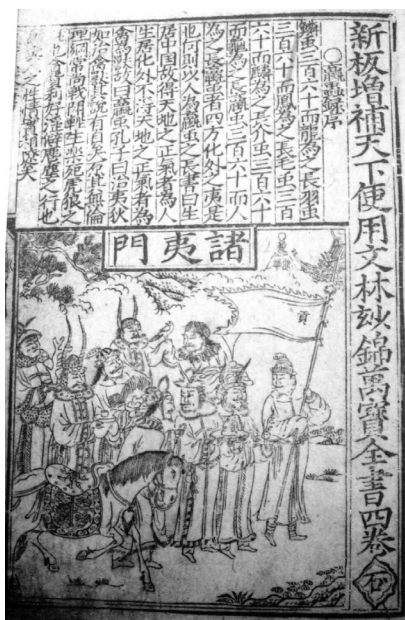 新板增補天下便用文林玅錦萬寶全書四卷
○臝蟲錄序
鱗虫三百六十而龍為之長羽虫
三百六十而鳳為之長毛虫三百
六十而麟為之長介虫三百六十
而龜為之長臝虫三百六十而人
為之長臝虫者四方化外之夷是
也何則以人為臝虫之長書曰生
居中國故得天地之正氣者為人
生居化外不得天地之正氣者為
禽為獸故曰臝虫孔子曰治夷狄
如治禽獸其說有自矣其無倫
理綱常尚戰鬪輕生樂死虎狼之
也貪貨利好淫僻麀之行也
之性情實相矣
諸夷門
貢